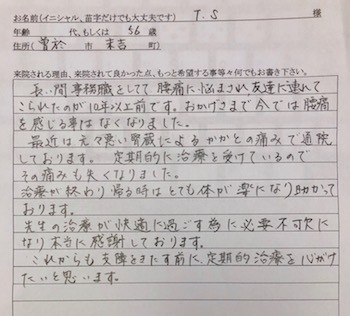 お名前(イニシャル、苗字だけでも大丈夫です) T.S 様
年齢 代、もしくは 56 歳
住所( 曽於 市 末吉 町)
来院される理由、来院されて良かった点、もっと希望する事等々何でもお書き下さい。
長い間事務職をしてて腰痛に悩まされ友達に連れて
こられたのが10年以上前です。おかげさまで今では腰痛
を感じる事はなくなりました。
最近は元々悪い腎臓によるかかとの痛みで通院
しております。定期的に治療を受けているので
その痛みも失くなりました。
治療が終わり帰る時はとても体が楽になり助かって
おります。
先生の治療が快適に過ごす為に必要不可欠に
なり本当に感謝しております。
これからも支障をきたす前に、定期的治療を心がけ
たいと思います。